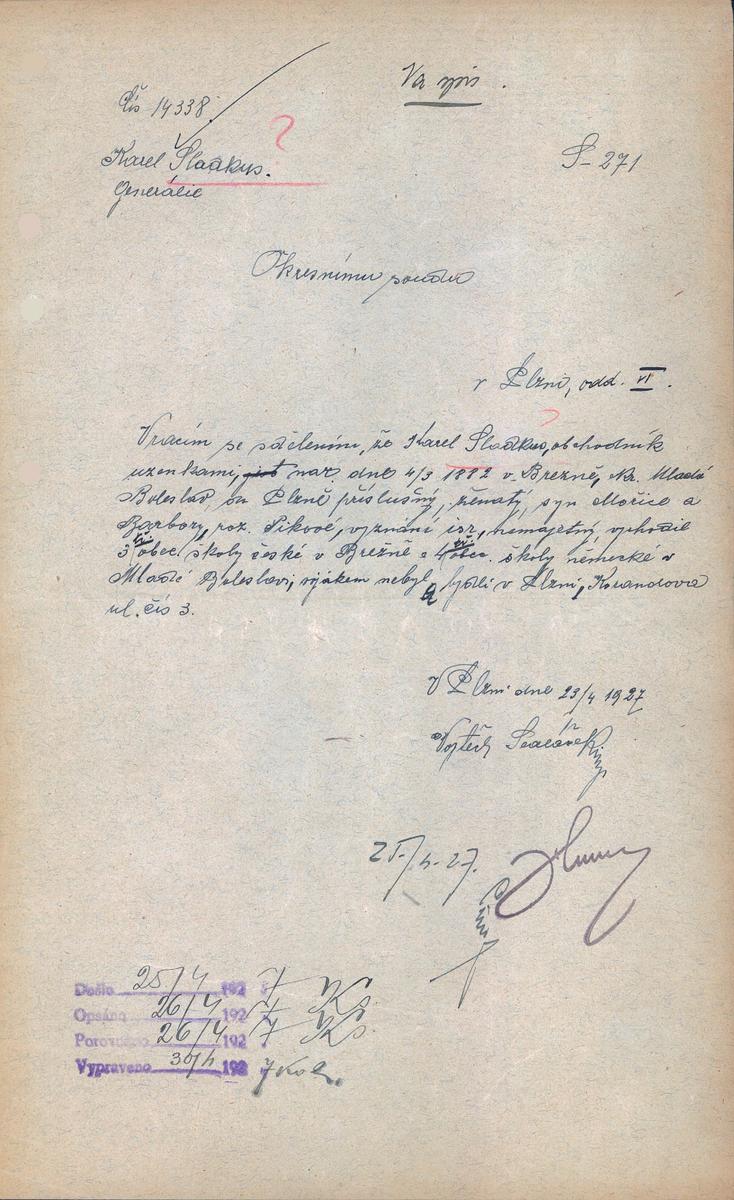 Na spis.
Čís 14338
Karel Sladkus. ?
S-271
Generálie
Okresnímu soudu
v Plzni, odd. VI.
Vracím se sdělením, že Karel Sladkus, obchodník
uzenkami, nar. dne 4/3 1882 v Brezně, okr. Mladá
Boleslav, do Plzně příslušný, ženatý, syn Mořice a
Barbory, roz. Pikové, vyznání isr., nemajetný, vychodil
3 tř. obec. školy české v Březně a 4 tř. obec. školy německé v
Mladé Boleslavi, vojákem nebyl a bydlí v Plzni, Korandova
ul. čís 3.
V Plzni dne 23/4 1927
Vojtěch
25/4-27.
Došlo 25/4 192 7
Opsáno 26/4 192 7
Porovnáno 26/4 192 7
Vypraveno 30/4 192 7